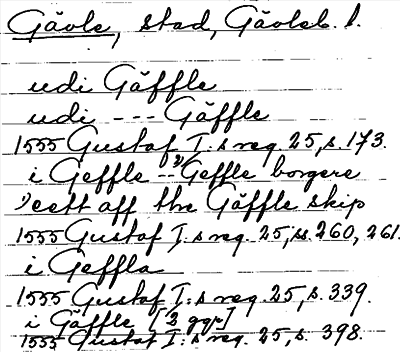 Gävle, stad, Gävleb. l.
udi Gäffle
udi --- Gäffle
1555 Gustaf I:s reg. 25, s. 173.
i Geffle -- Geffle borgere
eett aff the Gäffle skip
1555 Gustaf I:s reg. 25, ss. 260, 261.
i Geffla
1555 Gustaf I:s reg. 25, s. 339.
i Gäffle [2 ggr]
1555 Gustaf I:s reg. 25, s. 398.